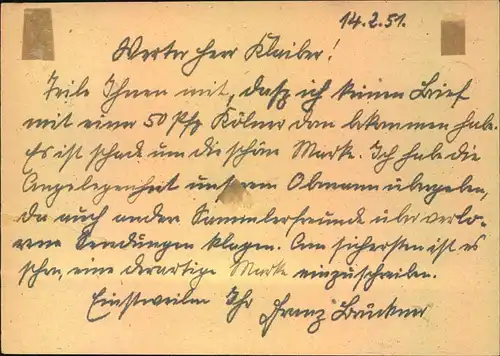 14.2.51.
Werter Herr Klaiber!
Teile Ihnen mit, daß ich keinen Brief
mit einer 50 Pfg Kölner Dom bekommen habe.
Es ist schade um die schöne Marke. Ich habe die
Angelegenheit unserem Obmann übergeben,
da auch andere Sammlerfreunde über verlo-
rene Sendungen klagen. Am sichersten ist es
schon, eine derartige Marke einzuschreiben.
Einstweilen Ihr Franz Brückner